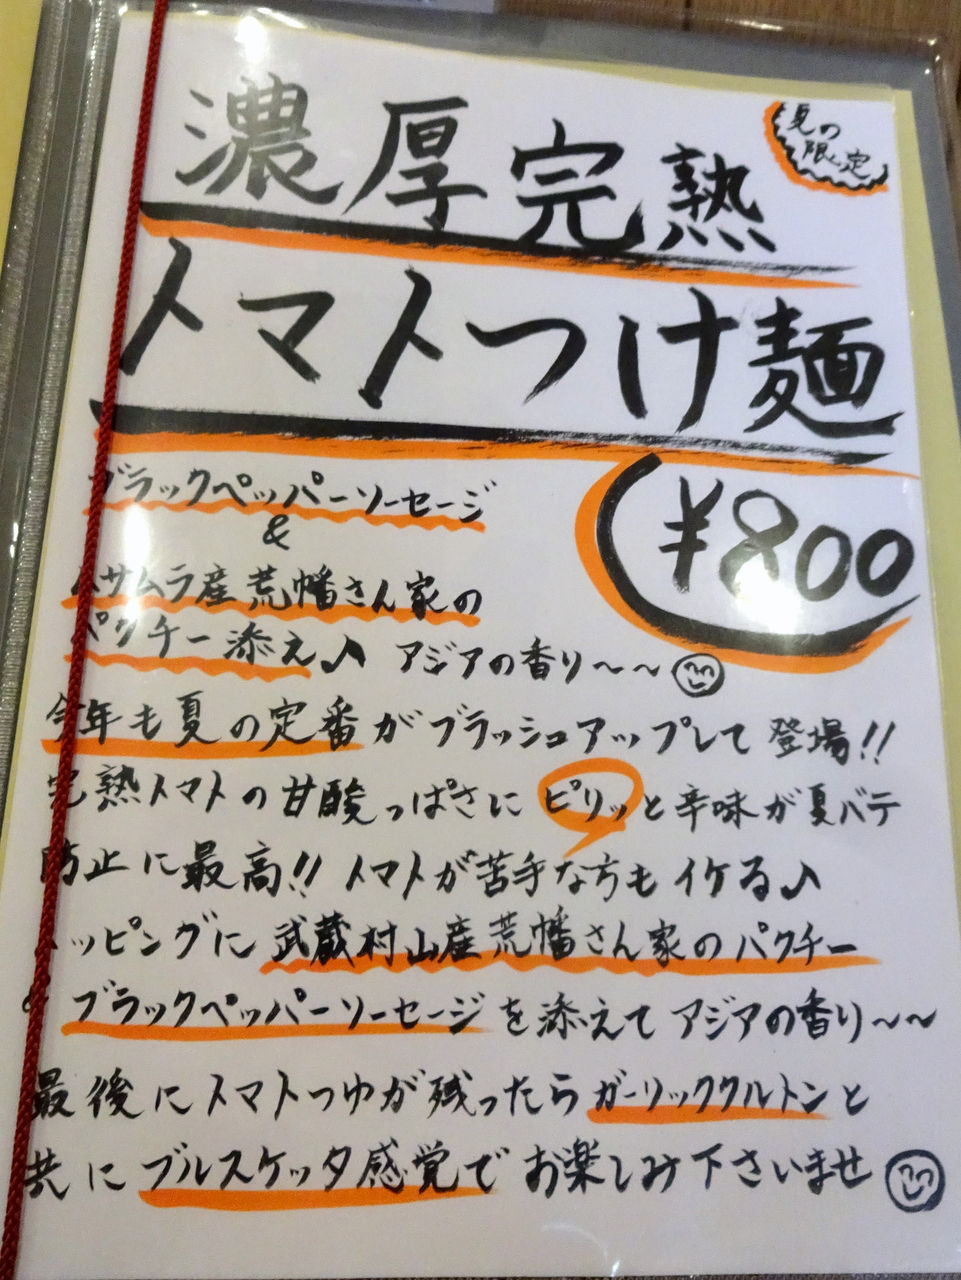 夏の
限定
濃厚完熟
トマトつけ麺
¥800
ブラックペッパーソーセージ
&
ムサムラ産荒幡さん家の
パクチー添え♪ アジアの香り〜〜
今年も夏の定番がブラッシュアップして登場!!
完熟トマトの甘酸っぱさにピリッと辛味が夏バテ
防止に最高!! トマトが苦手な方もイケる♪
トッピングに武蔵村山産荒幡さん家のパクチー
& ブラックペッパーソーセージを添えてアジアの香り〜〜
最後にトマトつゆが残ったらガーリッククルトンと
共にブルスケッタ感覚でお楽しみ下さいませ